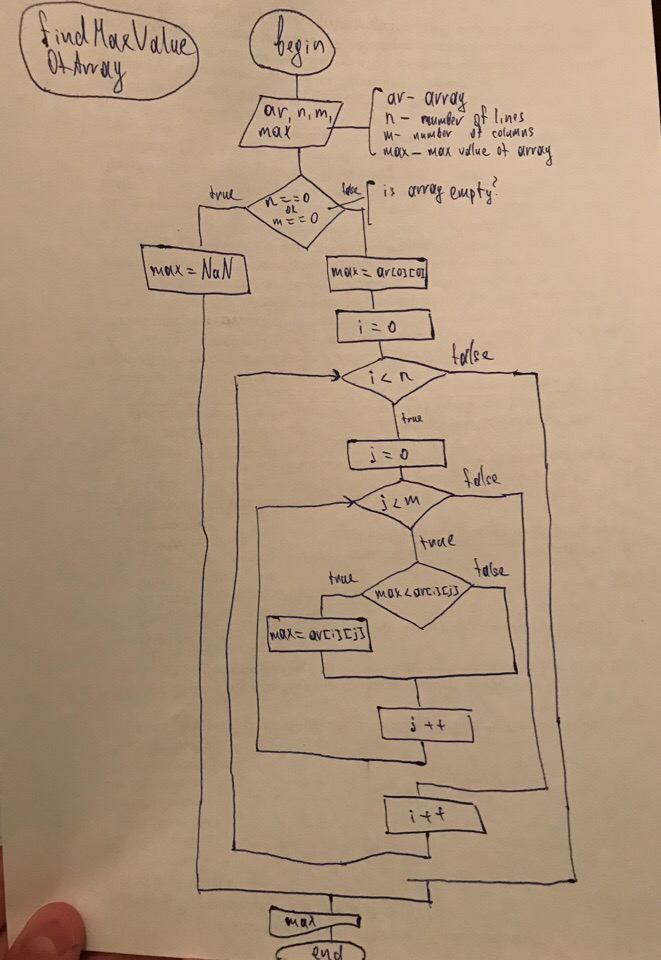 findMaxValue
OfArray
begin
ar, n, m,
max
ar - array
n - number of lines
m - number of columns
max - max value of array
true
n == 0
or
m == 0
false
is array empty?
max = NaN
max = ar[0][0]
i = 0
i < n
false
true
j = 0
j < m
false
true
true
max < ar[i][j]
false
max = ar[i][j]
j ++
i ++
max
end